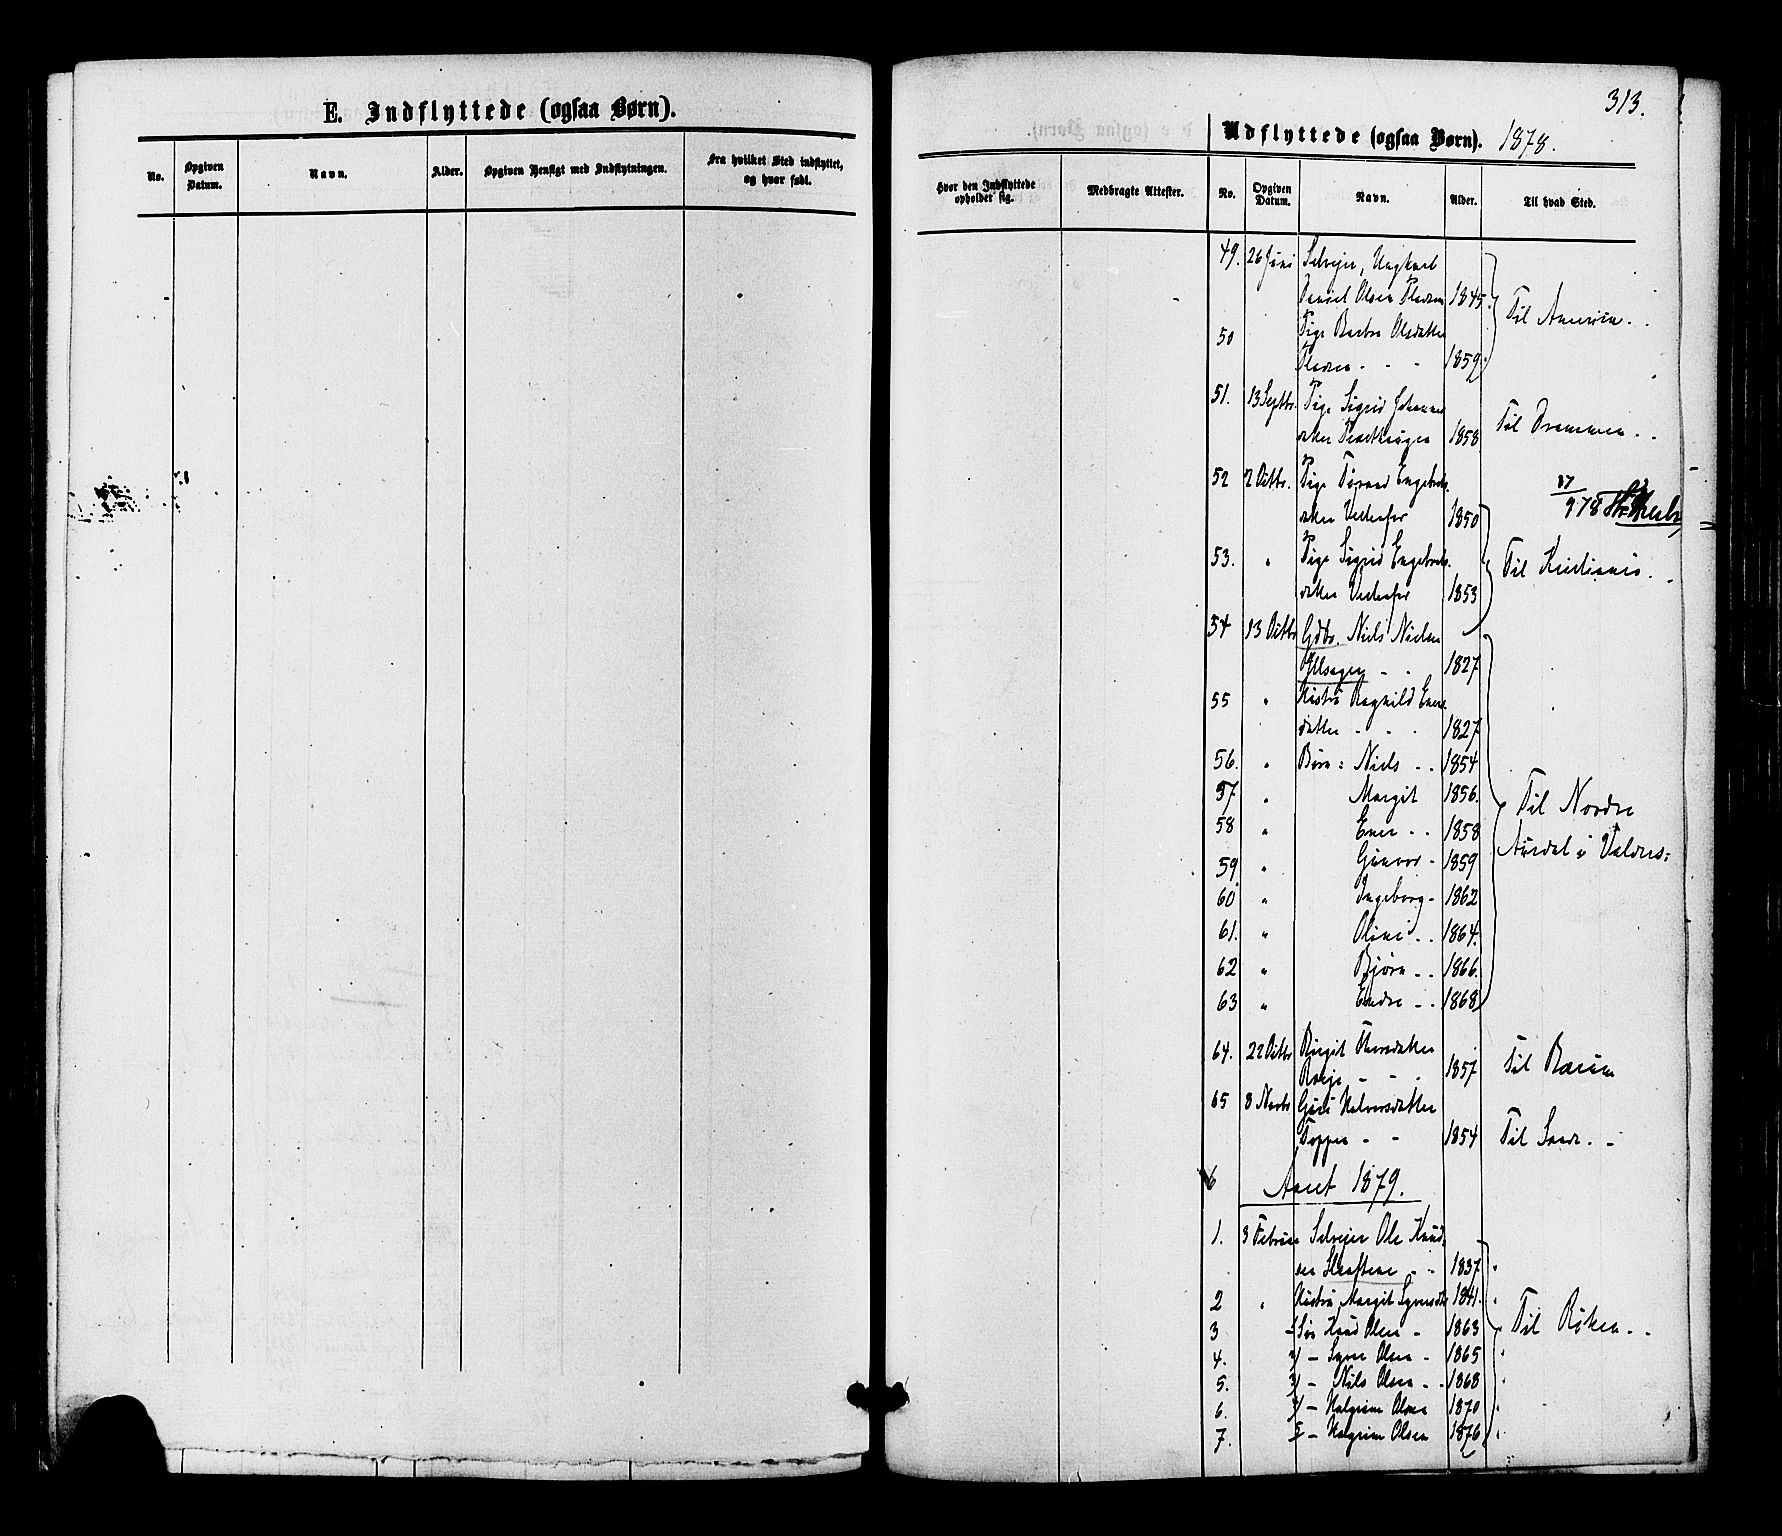 E. Indflyttede (ogsaa Børn).
No.
Opgiven Datum.
Navn.
Alder.
Opgiven Hensigt med Indflytningen.
Fra hvilket Sted indflyttet, og hvor født.
313.
Udflyttede (ogsaa Børn). 1878.
Hvor den Indflyttede opholder sig.
Medbragte Attester.
No.
Opgiven Datum.
Navn.
Alder.
Til hvad Sted.
49. 26 Juni Selveier, Ungkarl
Olsen 1845.
50 Pige Barbro Olsdatter
1859.
Til America.
51. 13 Septbr. Pige Sigrid
datter 1858 Til Drammen.
52 2 Octbr. Pige Engebrets-
datter 1850
978
53. " Pige Sigrid Engebrets-
datter 1853
Til Kristiania.
54 13 Octbr Gdbr. Niels Nielsen
1827
55 " Hustru Ragnild
datter - - - 1827
56. " Børn: Niels - - 1854
57 " Margit 1856.
58 " Ener - - 1858
59. " Gunvor - 1859
60 " Ingeborg - 1862
61. " Oline - - 1864.
62 " Bjørn - - 1866.
63 " Endre - - 1868
Til Nordre
Aurdal i Valdres:
64. 22 Octbr Birgit Thoresdatter
1857 Til Bærum
65 8 Novbr Guri Halvorsdatter
1854 Til Sande. -
Aaret 1879.
1. 3 Februar Selveier Ole Knud-
sen - - 1837
2 " Hustru Margit 1841.
3 Søn Knud Olsen - 1863
4. 2/ - Syver Olsen - 1865
5. 3/ - Nils Olsen - - 1868
6. 4/ - Halgrim Olsen 1870
7. 5/ - Halgrim Olsen 1876
Til Røken - -